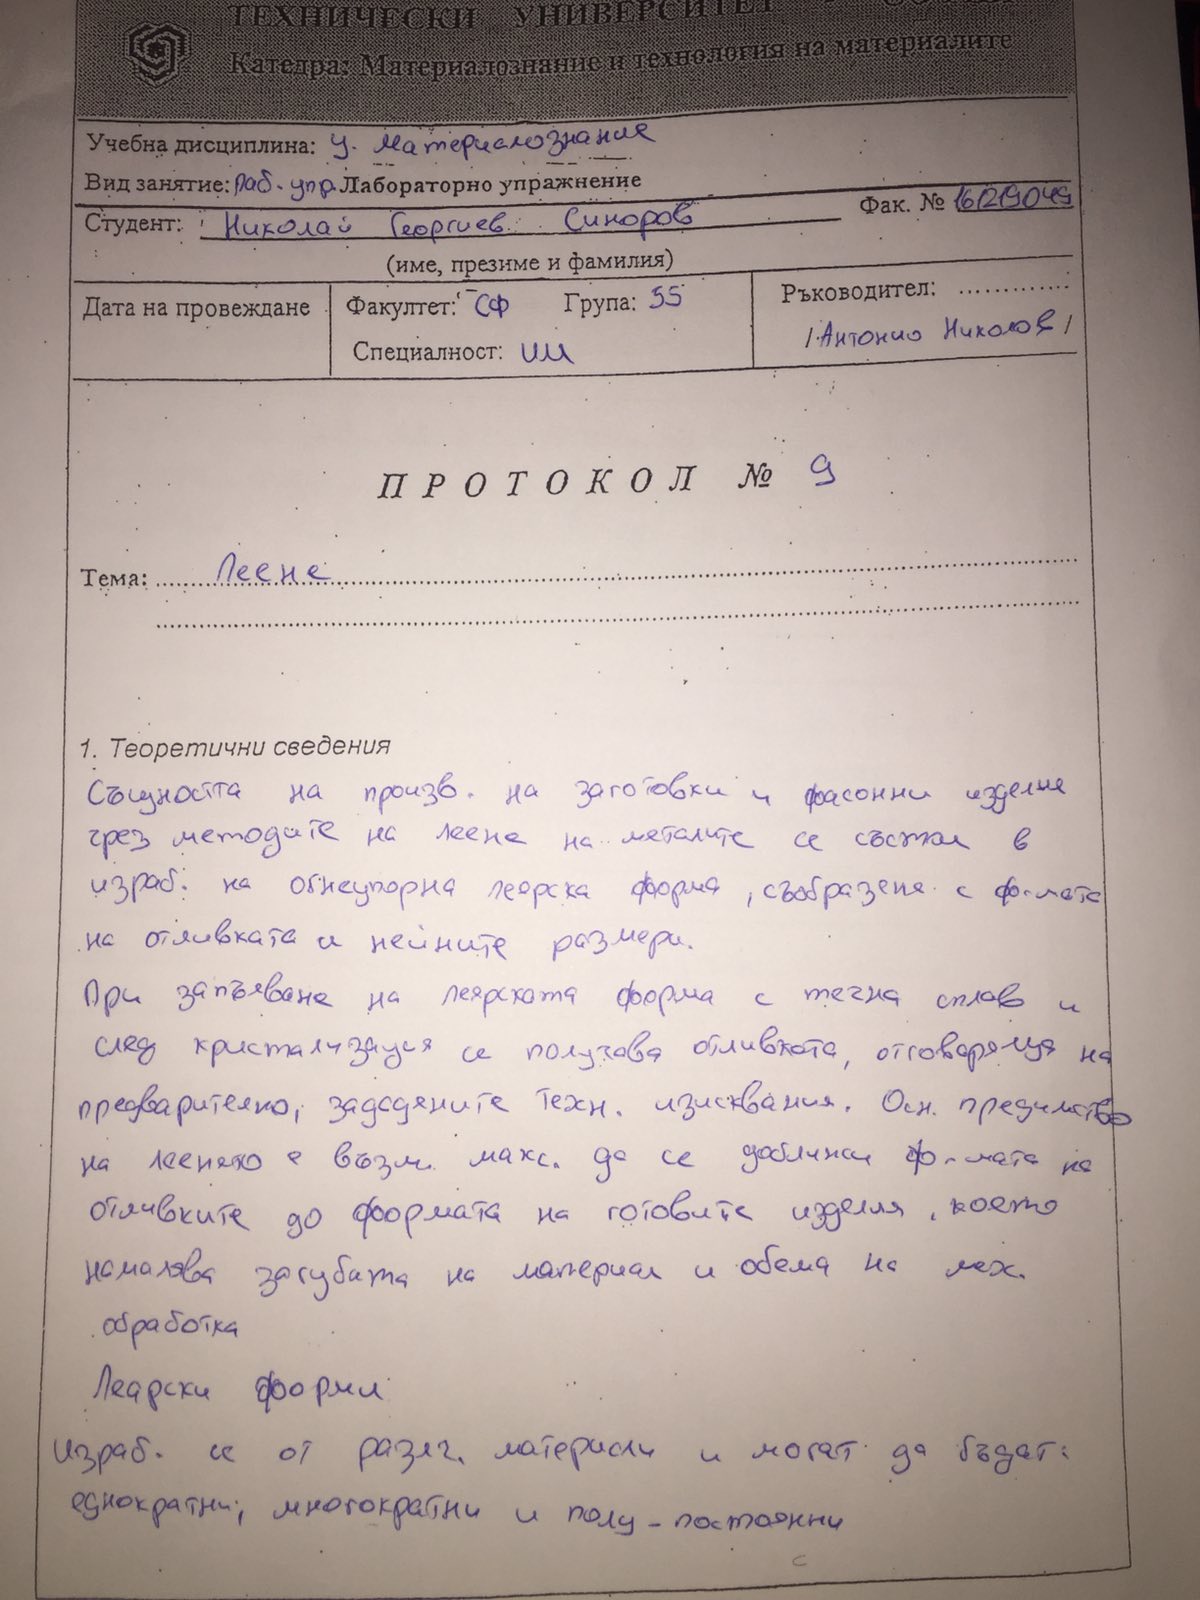 ТЕХНИЧЕСКИ УНИВЕРСИТЕТ
Катедра: Материалознание и технология на материалите
Учебна дисциплина: У. Материалознание
Вид занятие: Лаб. упр. Лабораторно упражнение
Фак. № 161219049
Студент: Николай Георгиев Синоров
(име, презиме и фамилия)
Дата на провеждане Факултет: СФ Група: 55 Ръководител: ............
Специалност: ИИ /Антонио Николов/
ПРОТОКОЛ № 9
Тема: Леене
1. Теоретични сведения
Същността на произв. на заготовки и фасонни изделие
чрез методите на леене на металите се състои в
израб. на огнеупорна леярска форма, съобразена с формата
на отливката и нейните размери.
При запълване на леярската форма с течна сплав и
след кристализация се получава отливката, отговаряща на
предварително, зададените техн. изисквания. Осн. предимство
на леенето е възм. макс. да се доближи формата на
отливките до формата на готовите изделия, което
намалява загубата на материал и обема на мех.
обработка
Леарски форми
Израб. се от разл. материали и могат да бъдат:
еднократни, многократни и полу-постоянни